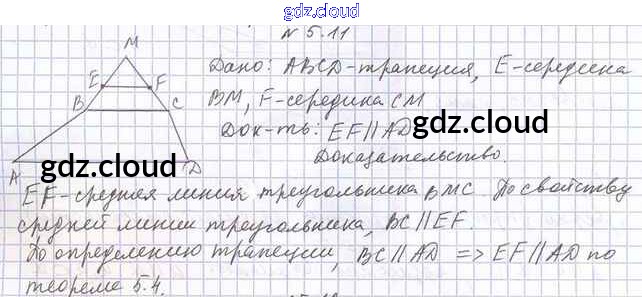 gdz.cloud
N 5.11
M
E F
Дано: ABCD-трапеция, E-середина
B C
BM, F-середина CM
Док-ть: EF||AD
gdz.cloud gdz.cloud
Доказательство.
A D
EF-средняя линия треугольника BMC. По свойству
средней линии треугольника, BC||EF.
По определению трапеции, BC||AD => EF||AD по
теореме 5.4.